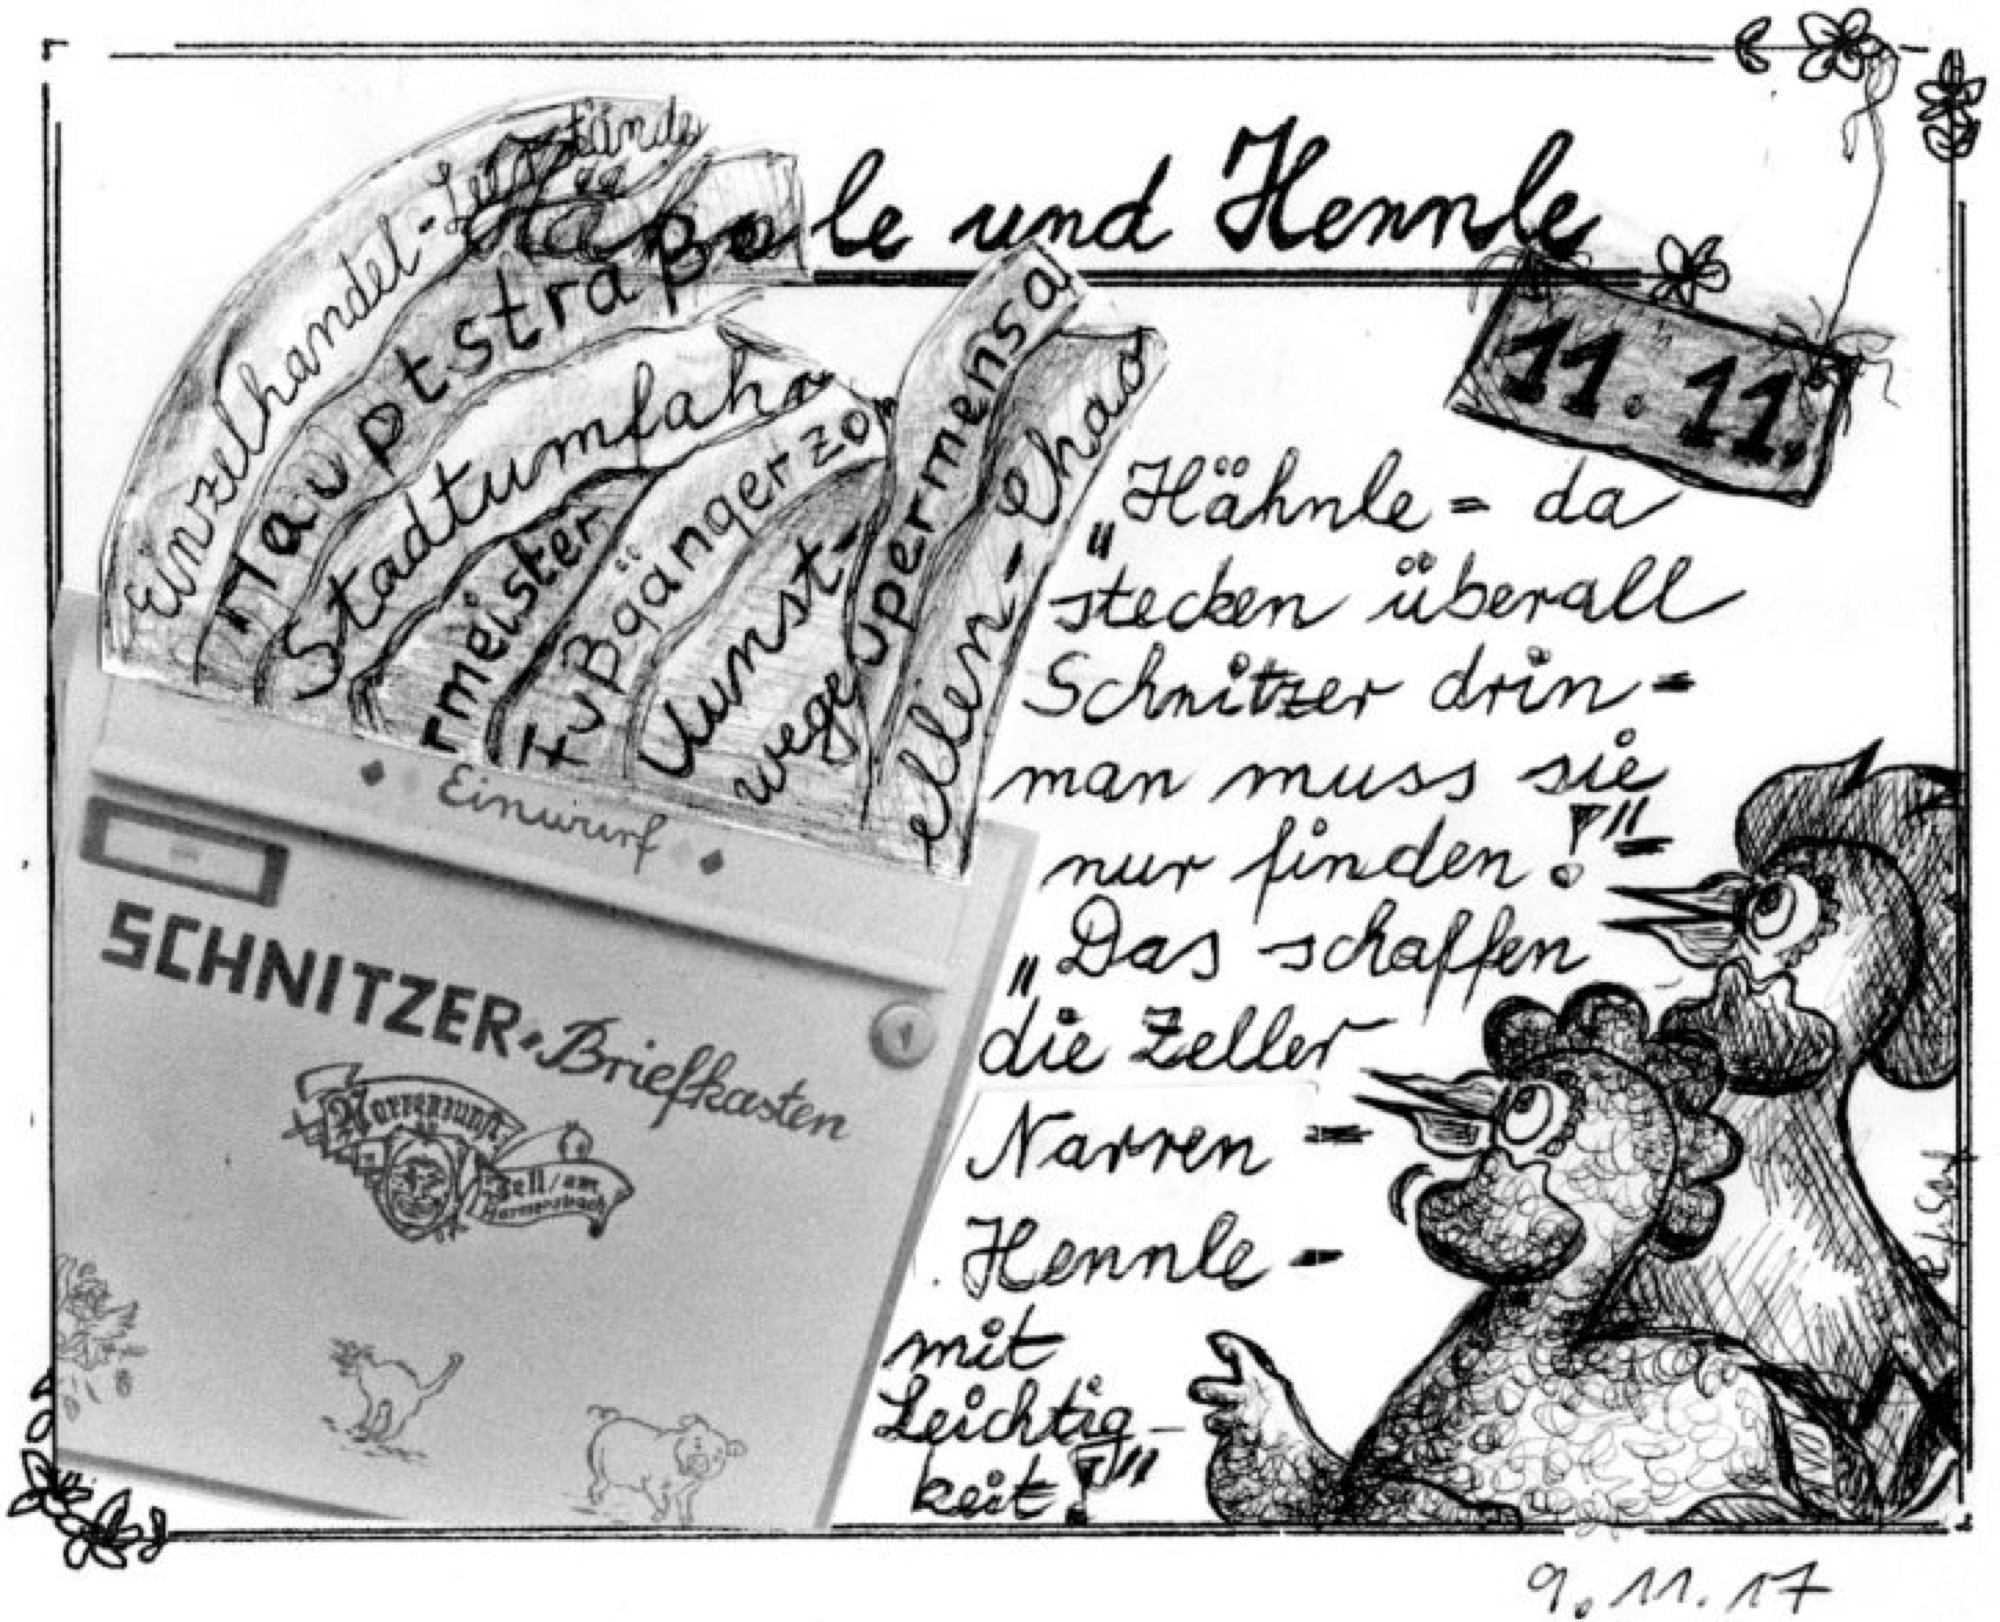 le und Hennle
11.11.
Einzelhandel-
Hauptstraße
Stadtumfahr
rmeister
Fußgängerzo
Kunst-
wege
upermensa
llen-Chao
Einwurf
SCHNITZER-Briefkasten
Narrenzunft
Zell/am
Harmersbach
„Hähnle - da
stecken überall
Schnitzer drin -
man muss sie
nur finden!" -
„Das schaffen
die Zeller
Narren -
Hennle -
mit
Leichtig-
keit!"
9.11.17